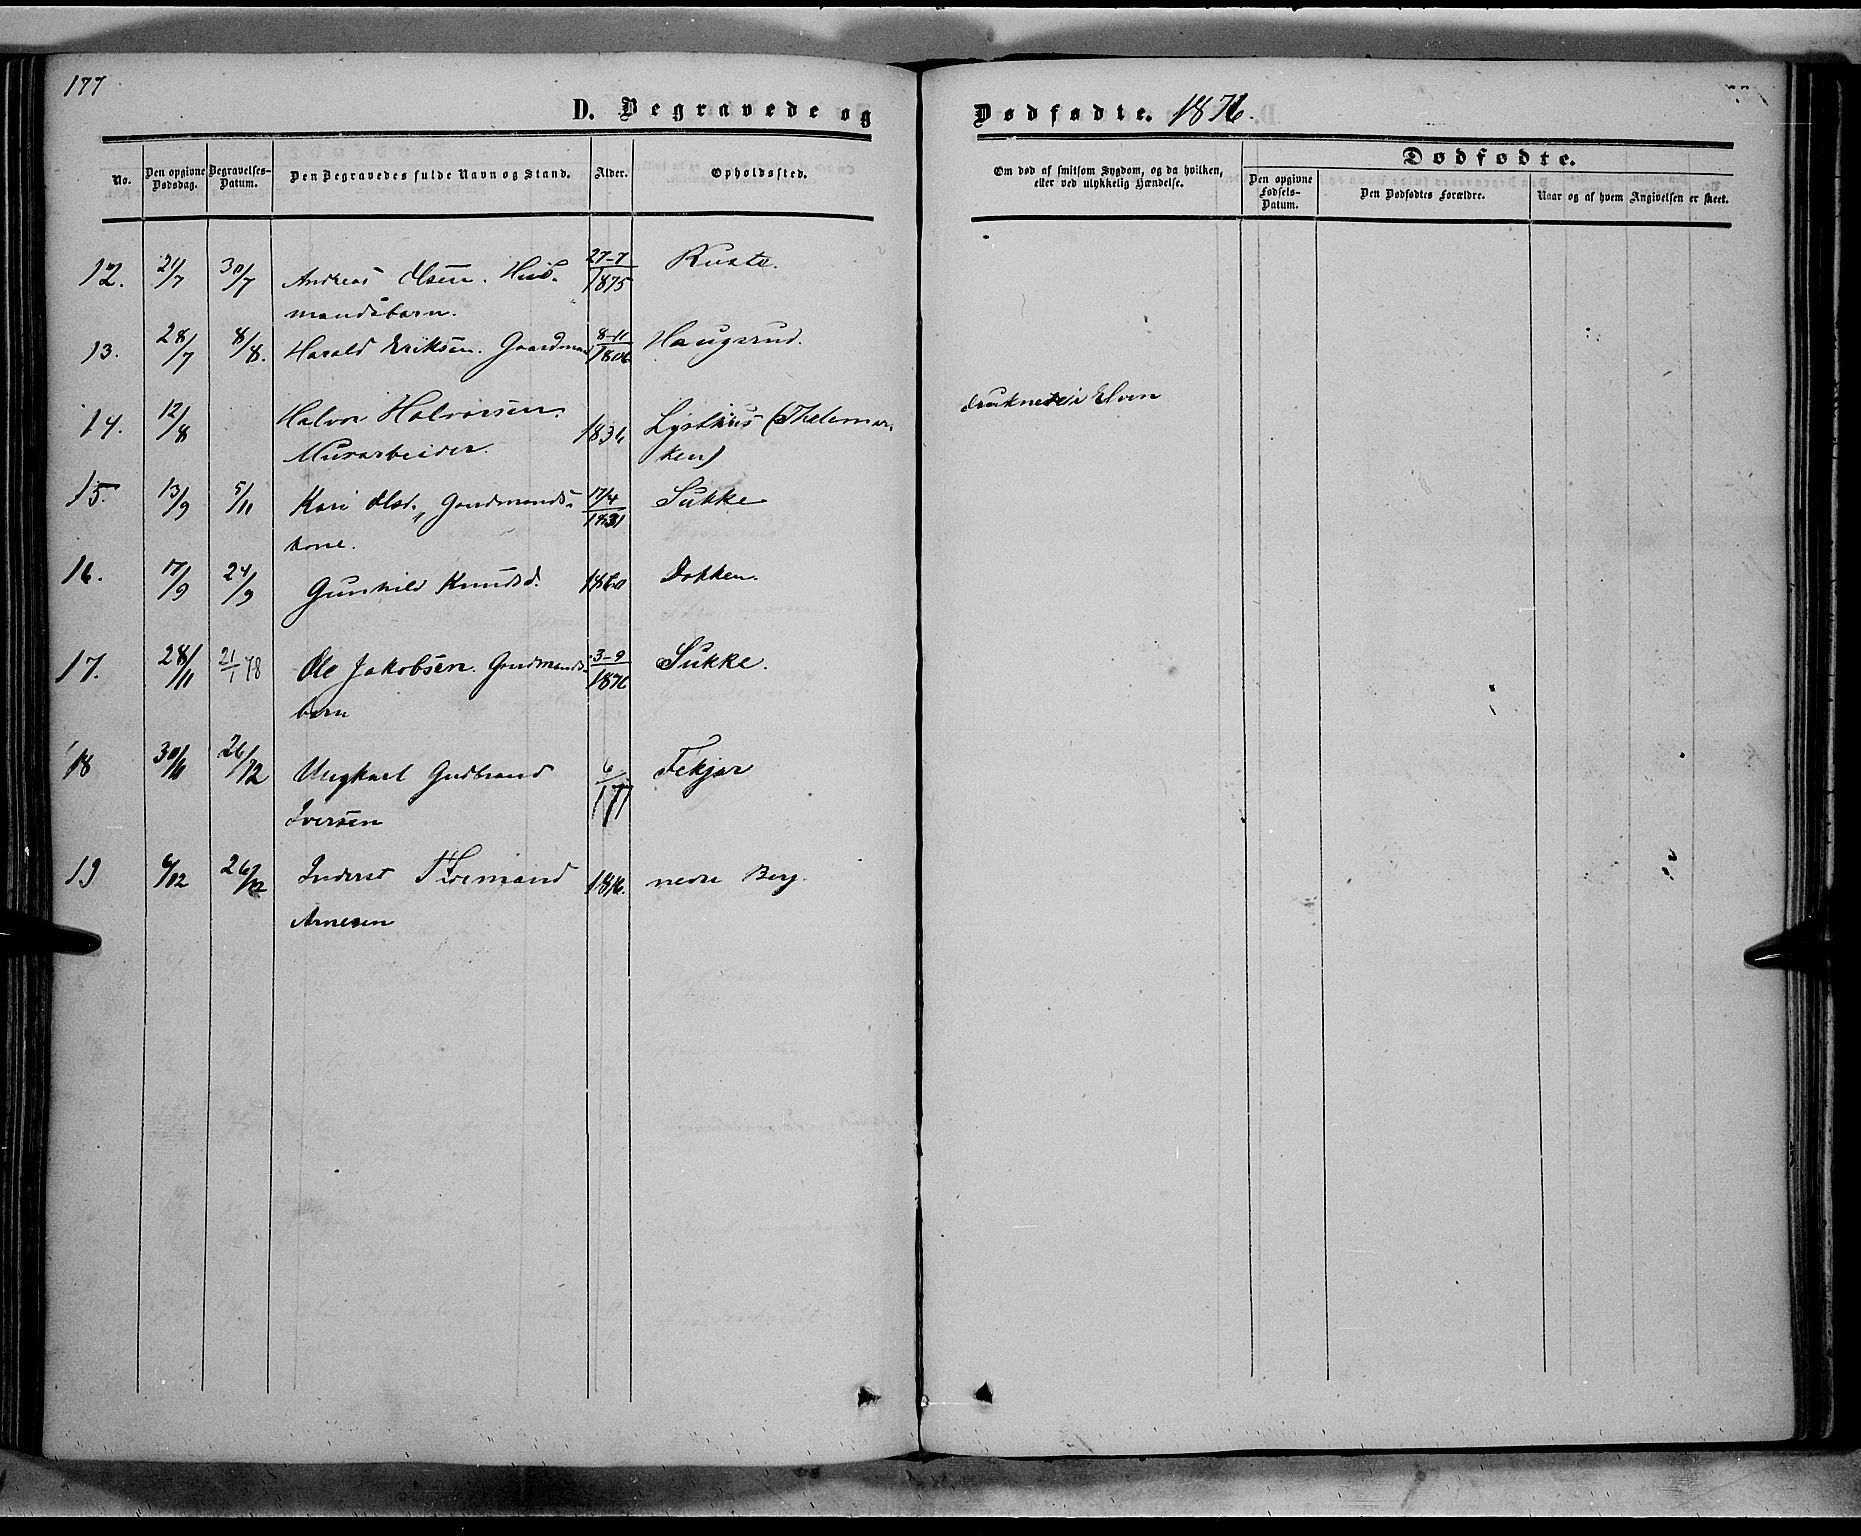 177
D. Begravede og Dødfødte. 1876.
No. Den opgivne Dødsdag. Begravelses-Datum. Den Begravedes fulde Navn og Stand. Alder. Opholdssted. Om død af smitsom Sygdom, og da hvilken, eller ved ulykkelig Hændelse. Dødfødte.
Den opgivne Fødsels-Datum. Den Dødfødtes Forældre. Naar og af hvem Angivelsen er skeet.
12. 21/7 30/7 Andreas Olsen. Hus- 27-7/1875 Ruste.
mandsbarn.
13. 28/7 8/8. Harald Eriksen. Gaardman 8-11/1806 Haugsrud.
14. 12/8 Halvor Halvorsen. 1836 Lysthus (Thelemar- druknede i Elven
Murarbeider. ken)
15. 13/9 5/11 Kari Olsd. Gaardmands- 17/4/1831 Sukke
kone.
16. 17/9 24/9 Gunhild Knudsd. 1860 Dokken.
17. 28/11 21/1 78 Ole Jakobsen. Gaardmands- 3-9/1876 Sukke.
barn
18 30/11 26/12 Ungkarl Gudbrand Fekjar
Iversen
19 6/12 26/12 Inderst Thormand 1816. nedre Berg.
Arnesen